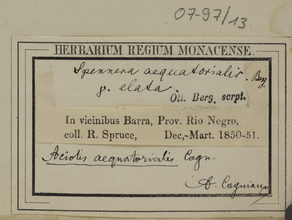 07-97/13
HERBARIUM REGIUM MONACENSE.
Spennera aequatorialis Bg
β. elata.
Ott. Berg. scrpt.
In vicinibus Barra, Prov. Rio Negro,
coll. R. Spruce, Dec.-Mart. 1850-51.
Aciotis aequatorialis Cogn.
A. Cogniaux